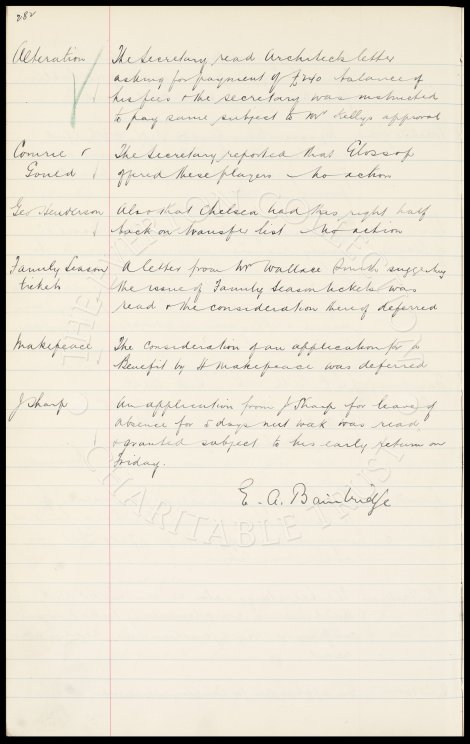 282
Alteration The Secretary read Architects letter
asking for payment of £240 balance of
his fees & the secretary was instructed
to pay same subject to Mr Kellys approval
Comrie & The Secretary reported that Glossop
Gould offered these players - no action
Geo Henderson Also that Chelsea had this right half
back on transfer list - no action
Family Season A letter from Mr Wallace Smith suggesting
tickets the issue of Family Season tickets was
read & the consideration thereof deferred
Makepeace The consideration of an application for a
Benefit by H Makepeace was deferred
J Sharp An application from J Sharp for leave of
absence for 5 days next week was read
& granted subject to his early return on
Friday.
E. A. Bainbridge
CHARITABLE TRUST